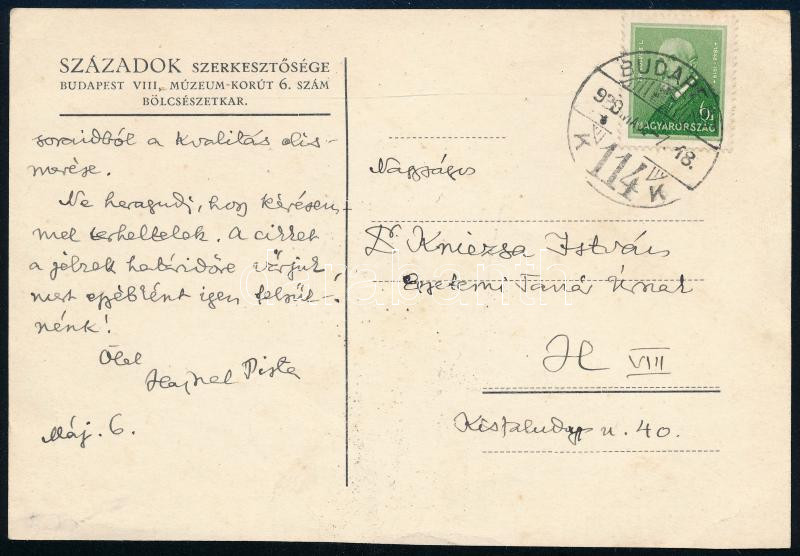 SZÁZADOK SZERKESZTŐSÉGE
BUDAPEST VIII, MÚZEUM-KORÚT 6. SZÁM
BÖLCSÉSZETKAR.
soraidból a kvalitás elis-
merése.
Ne haragudj, hogy kérésem-
mel terheltelek. A cikket
a jelzett határidőre várjuk
mert egyébként igen
nénk!
Ölel
Hajnal Pista
Máj. 6.
BUDAPEST
18.
K 114 K
6f
MAGYARORSZÁG
Nagyságos
Dr Kniezsa István
Egyetemi Tanár Úrnak
VIII
Kisfaludy u. 40.